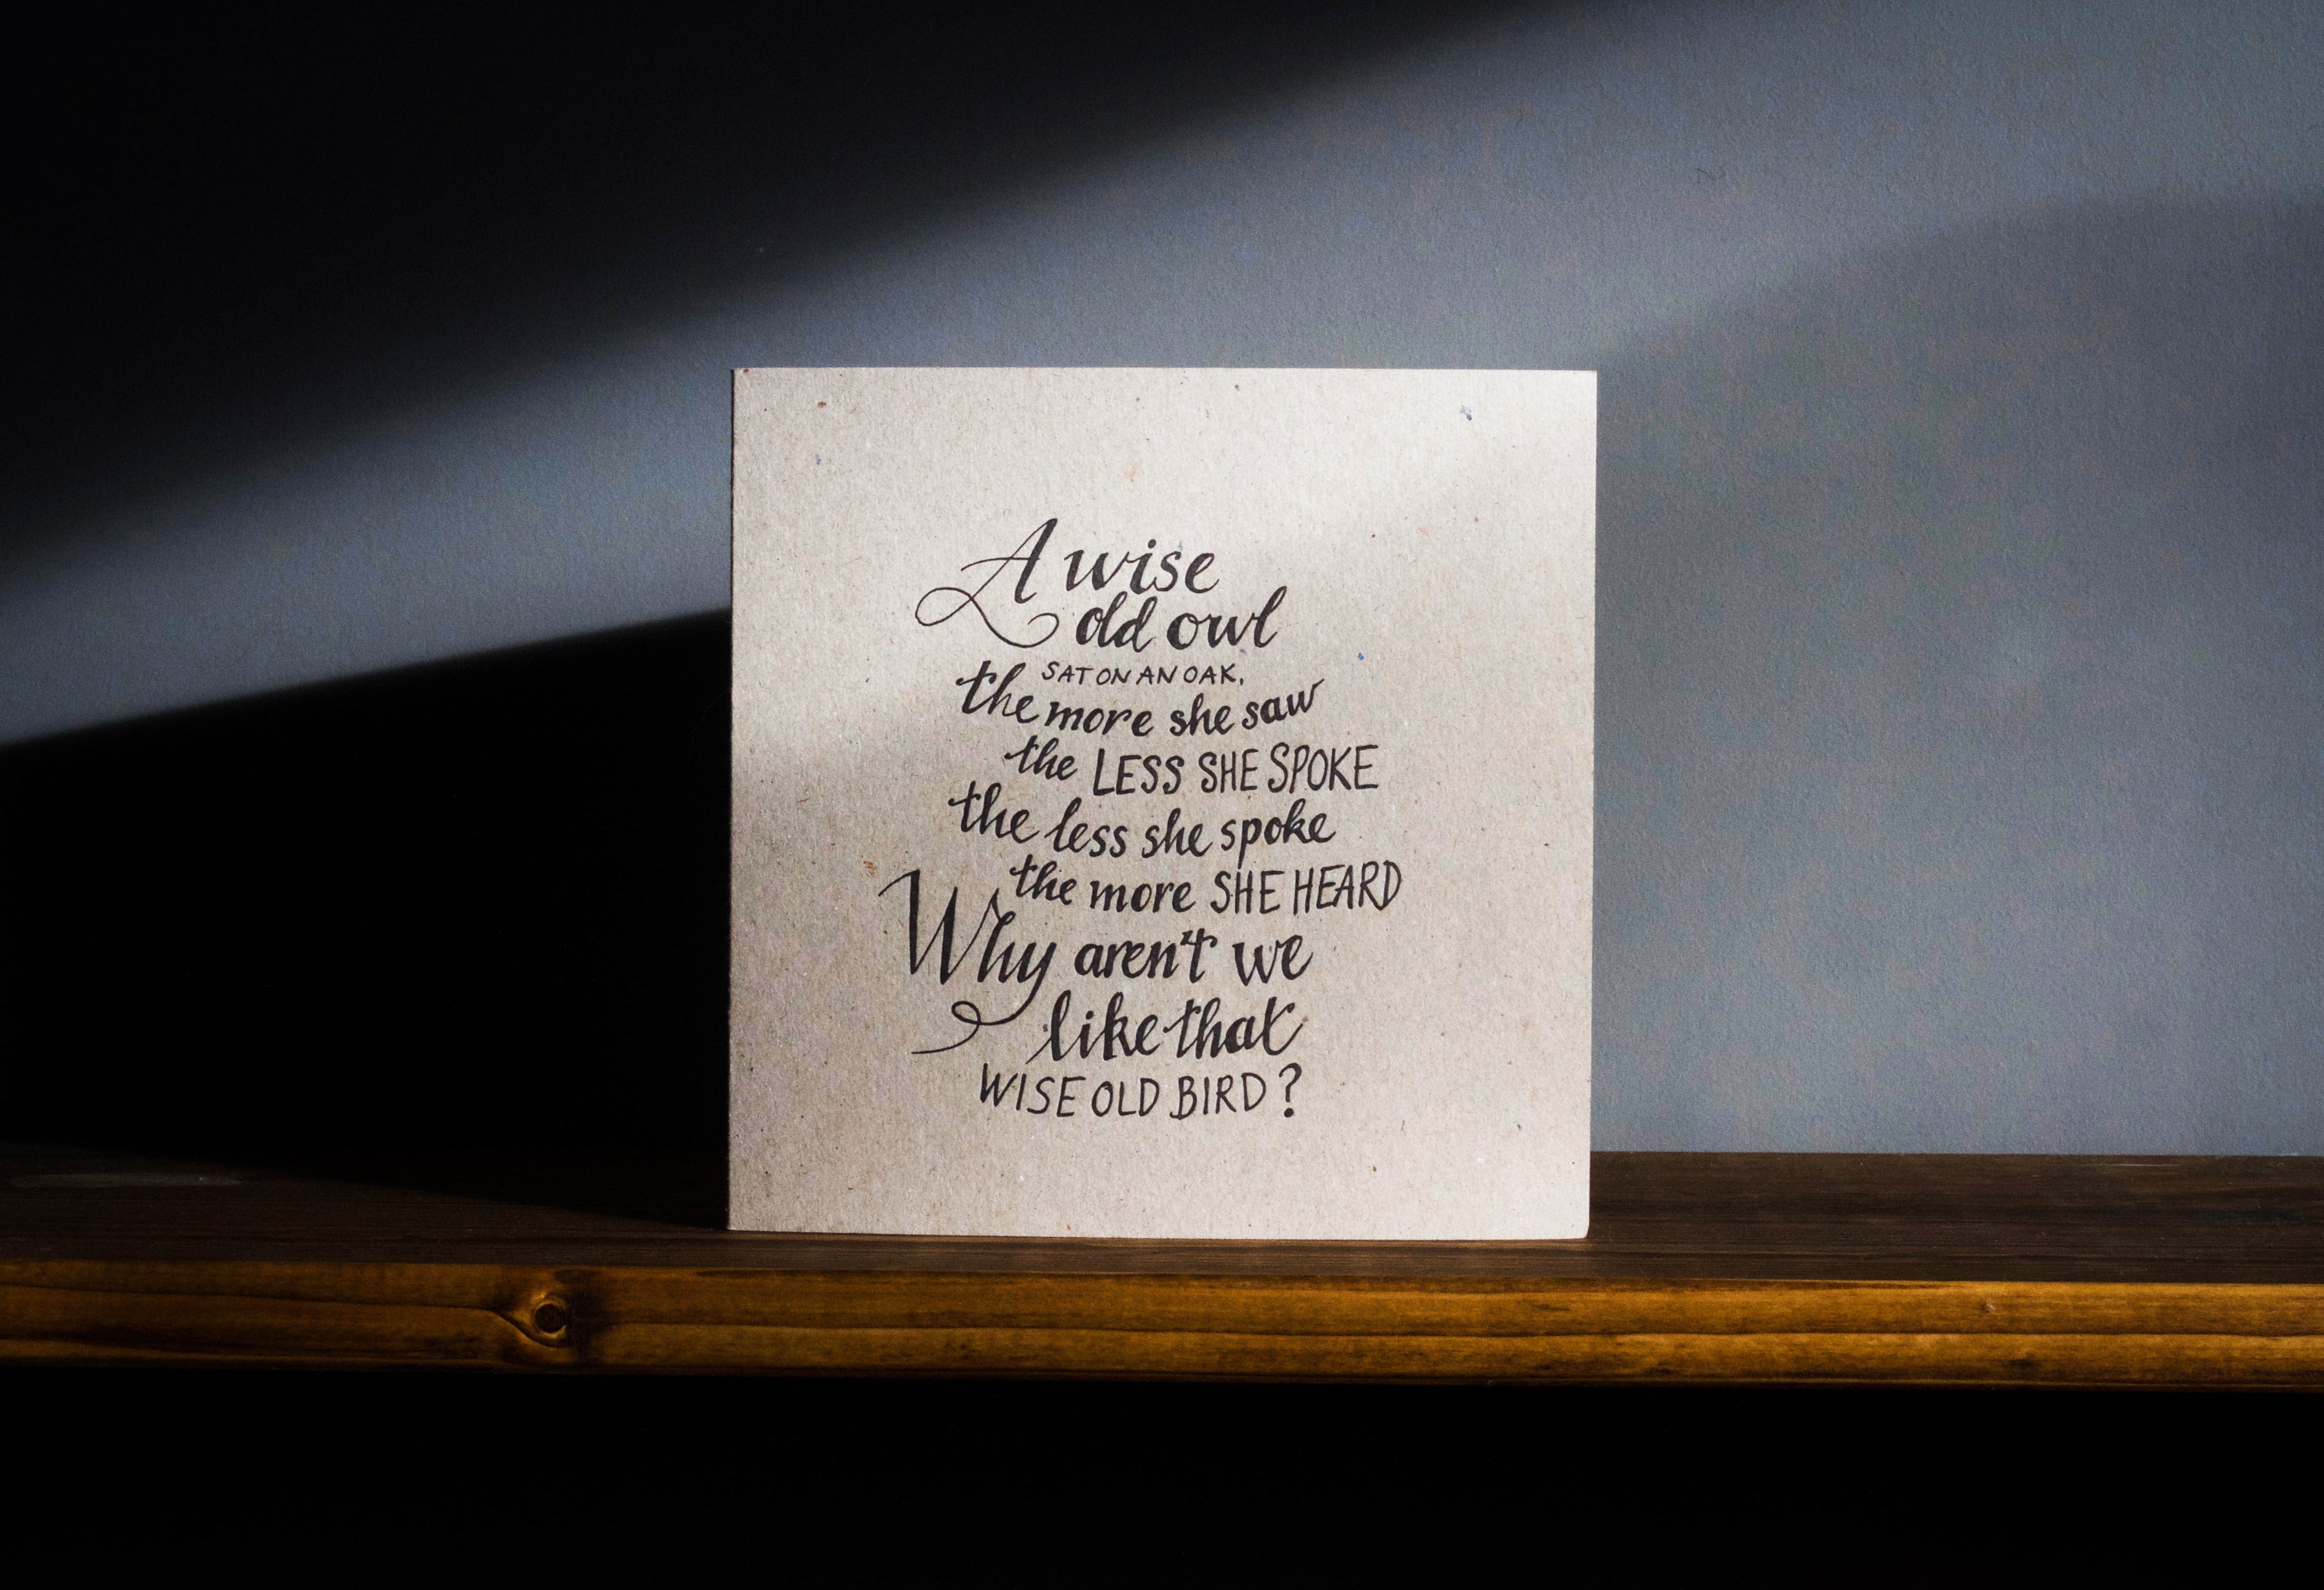 A wise
old owl
SAT ON AN OAK,
the more she saw
the LESS SHE SPOKE
the less she spoke
the more SHE HEARD
Why aren't we
like that
WISE OLD BIRD?